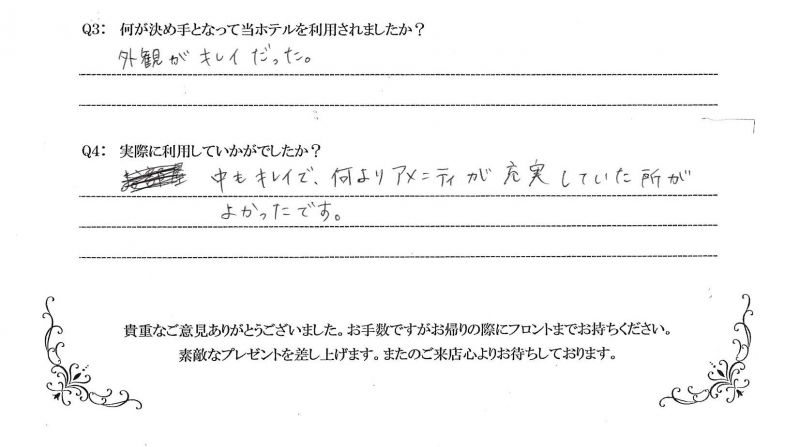 Q3: 何が決め手となって当ホテルを利用されましたか?
外観がキレイだった。
Q4: 実際に利用していかがでしたか?
中もキレイで、何よりアメニティが充実していた所が
よかったです。
貴重なご意見ありがとうございました。お手数ですがお帰りの際にフロントまでお持ちください。
素敵なプレゼントを差し上げます。またのご来店心よりお待ちしております。